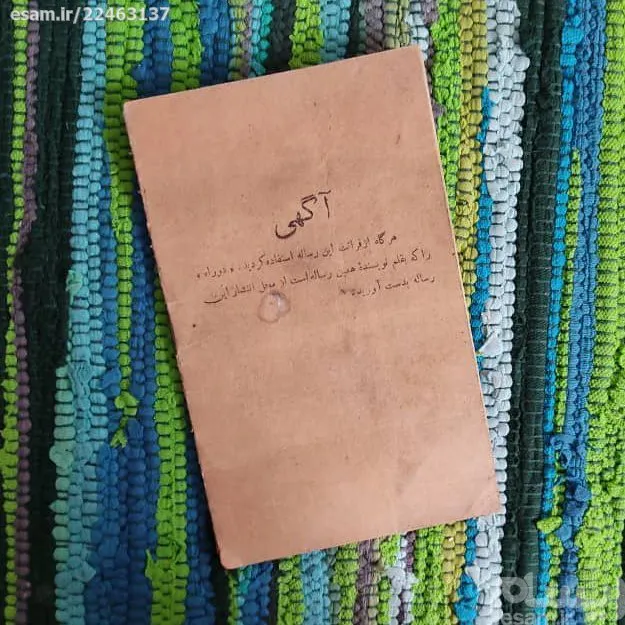 esam.ir/22463137
آگهی
هرگاه ازقرائت این رساله استفاده کردید، «دوراه»
راکه بقلم نویسندهٔ همین رساله است از محل انتشار این
رساله بدست آورید.
esam.ir